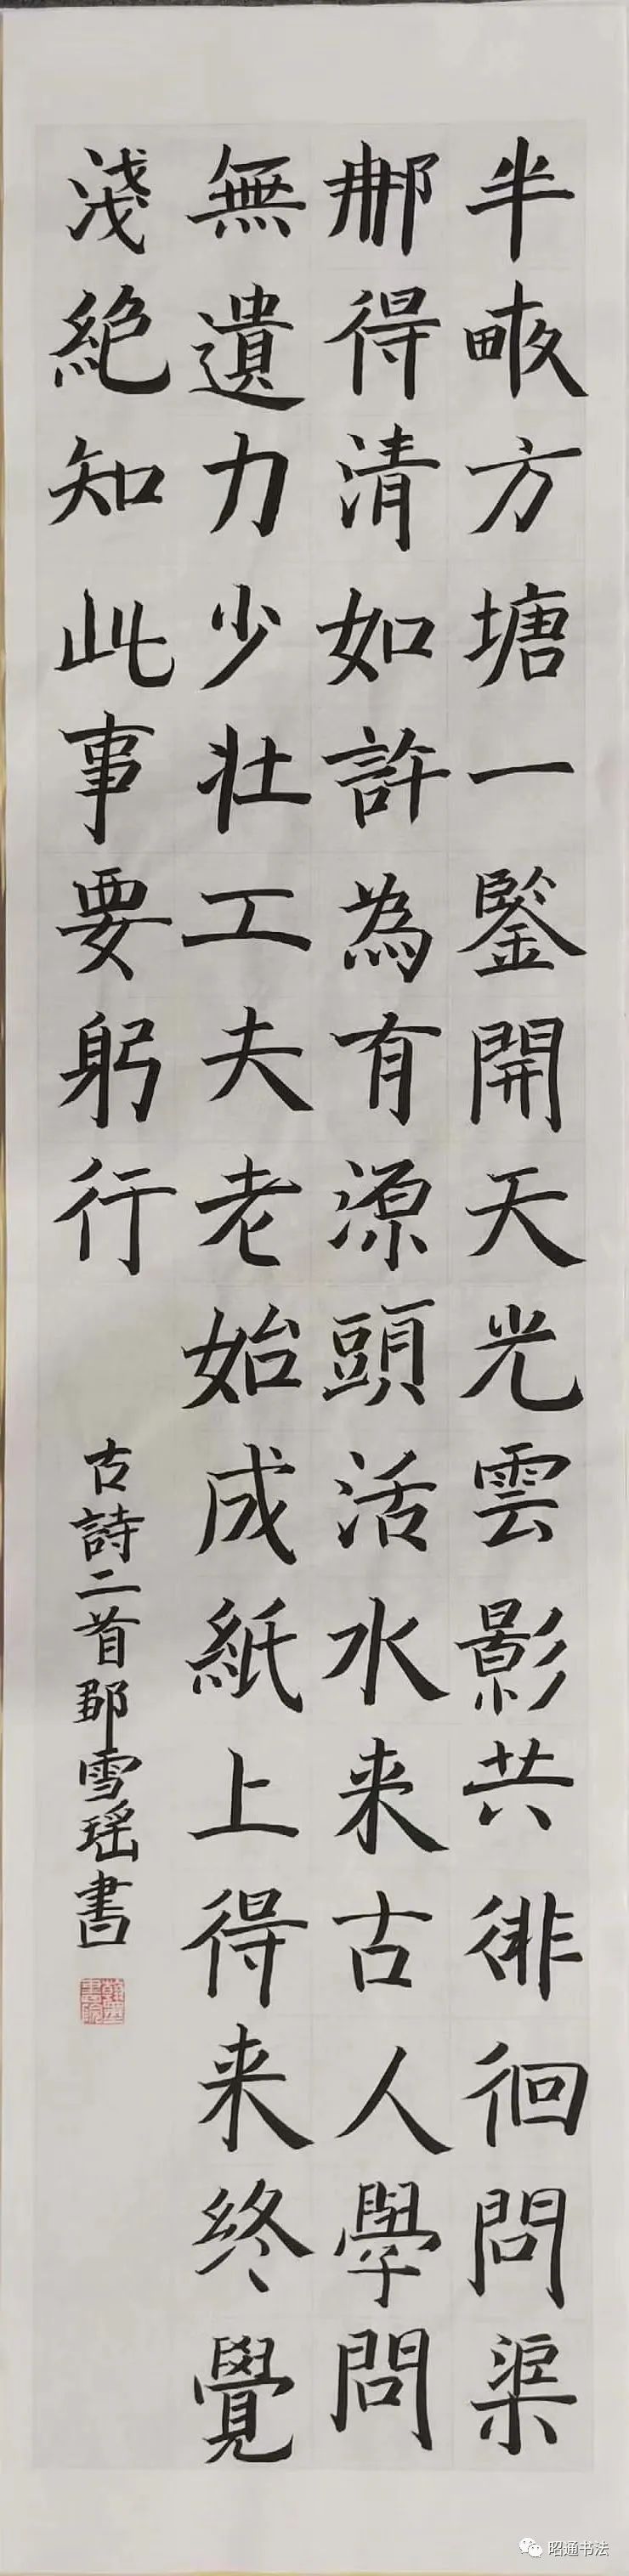 半畝方塘一鑒開天光雲影共徘徊問渠
那得清如許為有源頭活水来古人學問
無遺力少壮工夫老始成紙上得来终覺
淺絶知此事要躬行
古詩二首雪瑶書
翰墨書院
昭通书法